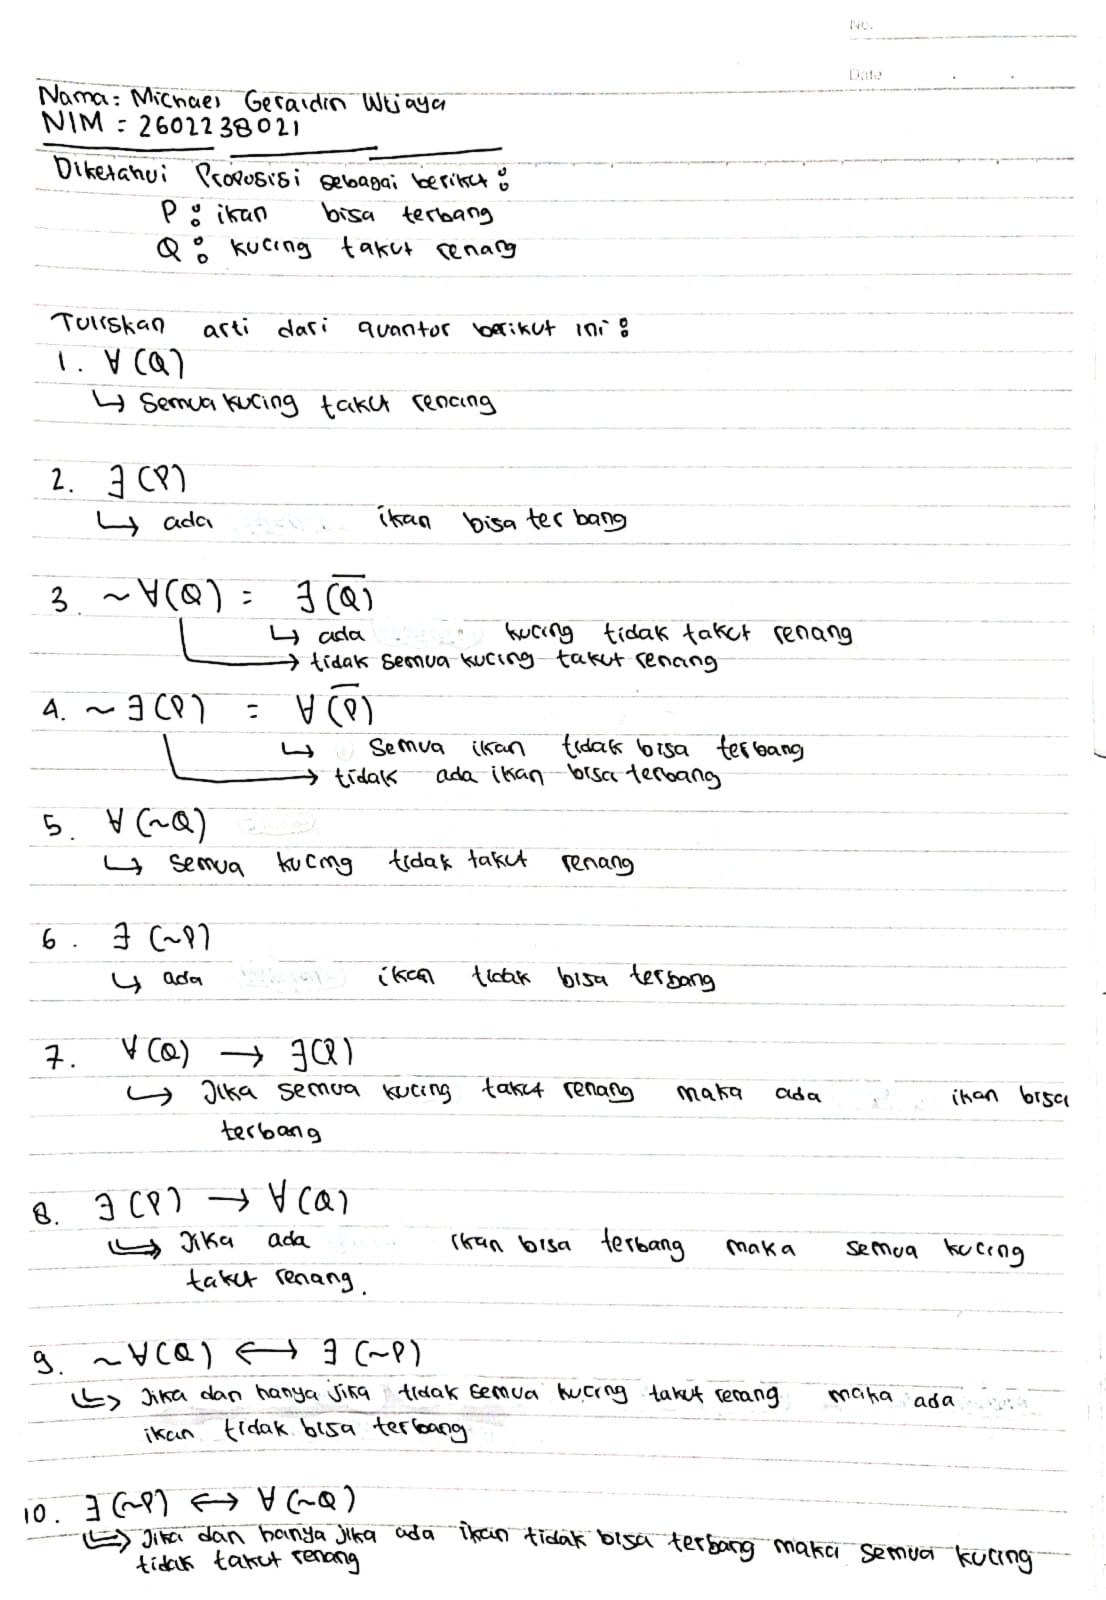 No.
Date
Nama: Michael Geraldin Wijaya
NIM = 2602238021
Diketahui Proposisi sebagai berikut :
P : ikan bisa terbang
Q : kucing takut renang
Tuliskan arti dari quantor berikut ini :
1. ∀ (Q)
↳ Semua kucing takut renang
2. ∃ (P)
↳ ada ikan bisa terbang
3. ~ ∀(Q) = ∃ (Q̅)
↳ ada kucing tidak takut renang
→ tidak semua kucing takut renang
4. ~ ∃ (P) = ∀ (P̅)
↳ Semua ikan tidak bisa terbang
→ tidak ada ikan bisa terbang
5. ∀ (~Q)
↳ semua kucing tidak takut renang
6. ∃ (~P)
↳ ada ikan tidak bisa terbang
7. ∀ (Q) → ∃(P)
↳ Jika semua kucing takut renang maka ada ikan bisa
terbang
8. ∃ (P) → ∀ (Q)
↳ Jika ada ikan bisa terbang maka semua kucing
takut renang.
9. ~ ∀(Q) ↔ ∃ (~P)
↳ Jika dan hanya jika tidak semua kucing takut renang maka ada
ikan tidak bisa terbang
10. ∃ (~P) ↔ ∀ (~Q)
↳ Jika dan hanya jika ada ikan tidak bisa terbang maka semua kucing
tidak takut renang